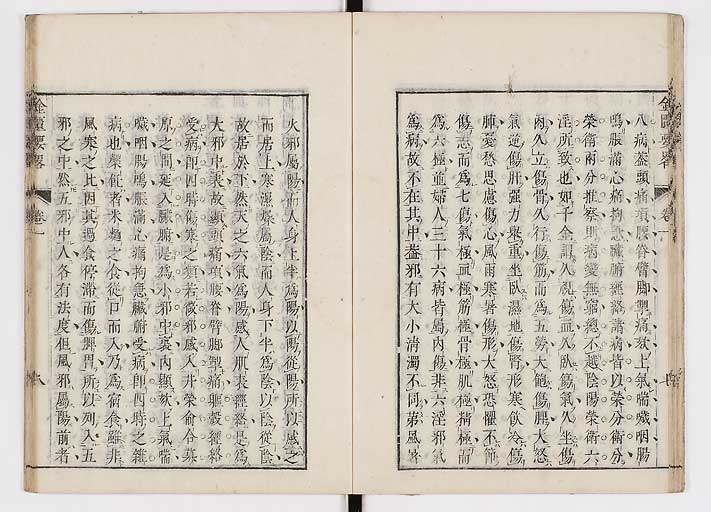 八病葢頭痛項腰脊臂脚掣痛欬上氣喘噦咽腸
鳴脹滿心痛拘急臟腑經絡諸病皆以榮分衛分
榮衛兩分推察則病變無窮總不越陰陽榮衛六
淫所致也如千金謂久視傷血久臥傷氣久坐傷
肉久立傷骨久行傷筋而為五勞大飽傷脾大怒
氣逆傷肝强力舉重坐臥濕地傷腎形寒飲冷傷
肺憂愁思慮傷心風雨寒暑傷形大怒恐懼不節
傷志而為七傷氣極血極筋極骨極肌極精極而
為六極並婦人三十六病皆屬內傷非六淫邪氣
為病故不在其中葢邪有大小清濁不同第風寒
金匱要畧
卷一
火邪屬陽而人身上半為陽以陽從陽所以感之
而居上寒濕燥屬陰而人身下半為陰以陰從陰
故居於下然天之六氣為陽感人肌表經絡是為
大邪中表故頭痛項腰脊臂脚掣痛軀殼經絡
受病即四時傷寒之類若微邪感人井榮俞合募
原之間延入臟腑是為小邪中裏內顯欬上氣喘
噦咽腸鳴脹滿心痛拘急臟腑受病即四時之雜
病也槃飪者米麵之食從口而入乃為宿食雖非
風寒之比因其過食停滯而傷脾胃所以列入五
邪之中然五邪中人各有法度但風邪屬陽前者
金匱要畧
卷一
八